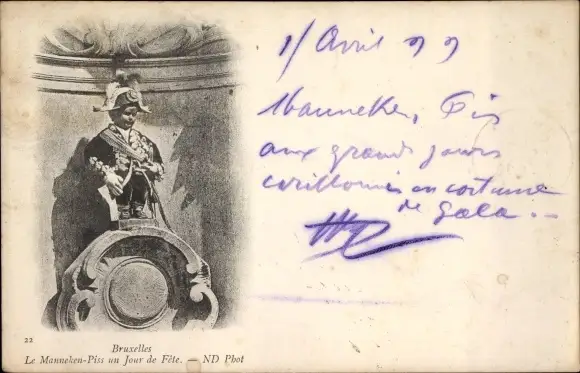 1/ Avril 99
Manneken, Pis
aux grands jours
carillonnés en costume
de Gala. —
22
Bruxelles
Le Manneken-Piss un Jour de Fête. — ND Phot